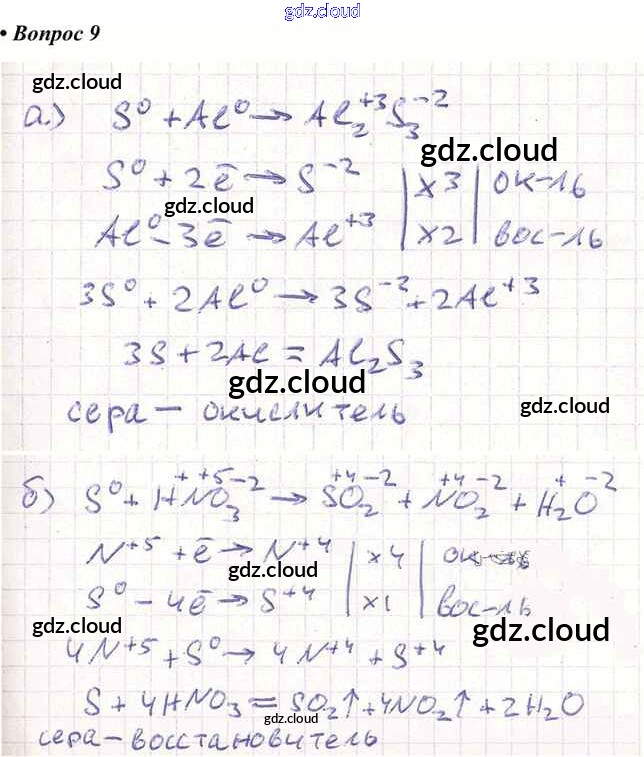 gdz.cloud
• Вопрос 9
gdz.cloud
а.) S⁰ + Al⁰ → Al₂⁺³S₃⁻²
gdz.cloud
S⁰ + 2ē → S⁻² | ×3 | ок-ль
gdz.cloud
gdz.cloud
Al⁰ - 3ē → Al⁺³ | ×2 | вос-ль
3S⁰ + 2Al⁰ → 3S⁻² + 2Al⁺³
3S + 2Al = Al₂S₃
gdz.cloud
сера — окислитель
gdz.cloud
б) S⁰ + H⁺N⁺⁵O₃⁻² → S⁺⁴O₂⁻² + N⁺⁴O₂⁻² + H₂⁺O⁻²
gdz.cloud
gdz.cloud
N⁺⁵ + ē → N⁺⁴ | ×4 | ок-ль
gdz.cloud
S⁰ - 4ē → S⁺⁴ | ×1 | вос-ль
gdz.cloud
gdz.cloud
4N⁺⁵ + S⁰ → 4N⁺⁴ + S⁺⁴
S + 4HNO₃ = SO₂↑ + 4NO₂↑ + 2H₂O
gdz.cloud
сера - восстановитель